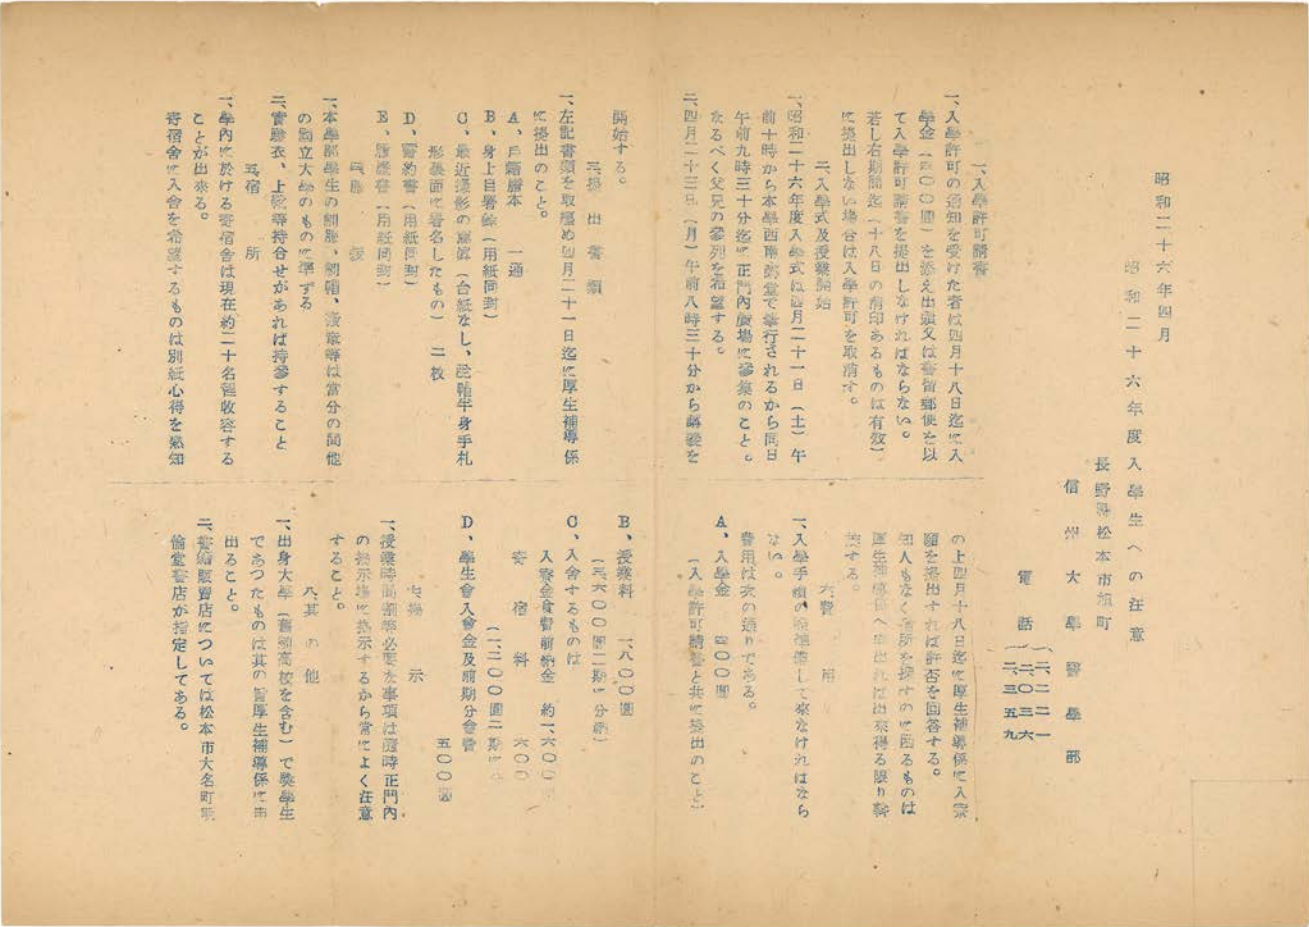 昭和二十六年四月
昭和二十六年度入學生への注意
長野縣松本市旭町
信州大學醫學部
電話
二、二二一
二、〇三六
二、三五九
一、入學許可請書
一、入學許可の通知を受けた者は四月十八日迄に入
學金(四〇〇圓)を添え出頭又は書留郵便を以
て入學許可請書を提出しなければならない。
若し右期間迄(十八日の消印あるものは有効)
に提出しない場合は入學許可を取消す。
二、入學式及授業開始
一、昭和二十六年度入學式は四月二十一日(土)午
前十時から本學西階講堂で擧行されるから同日
午前九時三十分迄に正門內廣場に參集のこと。
なるべく父兄の參列を希望する。
二、四月二十三日(月)午前八時三十分から講義を
開始する。
三、提出書類
一、左記書類を取纒め四月二十一日迄に厚生補導係
に提出のこと。
A、戶籍謄本 一通
B、身上自署錄(用紙同封)
C、最近撮影の寫眞(台紙なし、半身手札
形裏面に署名したもの)二枚
D、誓約書(用紙同封)
E、履歷書(用紙同封)
四、服裝
一、本學部學生の制服、制帽、徽章等は當分の間他
の國立大學のものに準ずる
二、實驗衣、上靴等持合せがあれば持參すること
五、宿所
一、學內に於ける寄宿舍は現在約二十名程收容する
ことが出來る。
寄宿舍に入舍を希望するものは別紙心得を熟知
の上四月十八日迄に厚生補導係に入寮
願を提出すれば許否を回答する。
知人もなく宿所を探すのに困るものは
厚生補導係へ申出れば出來得る限り斡
旋する。
六、費用
一、入學手續の際準備して來なければなら
ない。
費用は次の通りである。
A、入學金 四〇〇圓
(入學許可請書と共に提出のこと)
B、授業料 一、八〇〇圓
(三、六〇〇圓二期に分納)
C、入舍するものは
入寮金食費前納金 約一、六〇〇圓
寄宿料 六〇〇
(一、二〇〇圓二期に
D、學生會入會金及前期分會費
五〇〇圓
七、揭示
一、授業時間割等必要な事項は隨時正門內
の揭示場に揭示するから常によく注意
すること。
八、其の他
一、出身大學(舊制高校を含む)で奬學生
であつたものは其の旨厚生補導係に申
出ること。
二、書籍販賣店については松本市大名町
倫堂書店が指定してある。